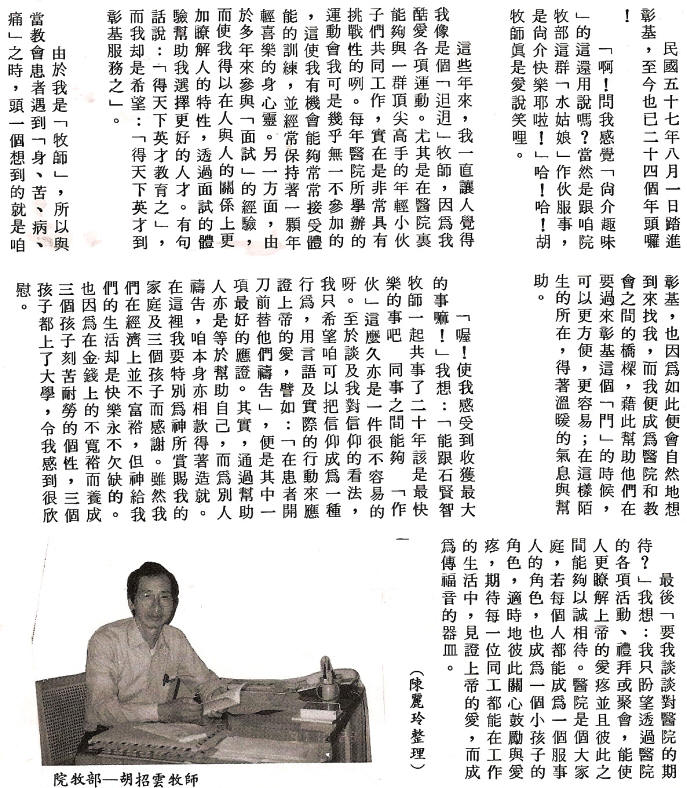 民國五十七年八月一日踏進
彰基，至今也已二十四個年頭囉
！
「啊！問我感覺「尙介趣味
」的這還用說嗎？當然是跟咱院
牧部這群「水姑娘」作伙服事，
是尙介快樂耶啦！」哈！哈！胡
牧師眞是愛說笑哩。
這些年來，我一直讓人覺得
我像是個「𨑨迌」牧師，因爲我
酷愛各項運動。尤其是在醫院裏
能夠與一群頂尖高手的年輕小伙
子們共同工作，實在是非常具有
挑戰性的咧。每年醫院所舉辦的
運動會我可是幾乎無一不參加的
，這使我有機會能夠常常接受體
能的訓練，並經常保持著一顆年
輕喜樂的心靈。另一方面，由
於多年來參與「面試」的經驗，
而使我得以在人與人的關係上更
加瞭解人的特性，透過面試的體
驗幫助我選擇更好的人才。有句
話說：「得天下英才教育之」，
而我却是希望：「得天下英才到
彰基服務之」。
由於我是「牧師」，所以與
當教會患者遇到「身、苦、病、
痛」之時，頭一個想到的就是咱
彰基，也因爲如此便會自然地想
到來找我，而我便成爲醫院和教
會之間的橋樑，藉此幫助他們在
要過來彰基這個「門」的時候，
可以更方便，更容易；在這樣陌
生的所在，得著溫暖的氣息與幫
助。
「喔！使我感受到收獲最大
的事嘛！」我想：「能跟石賢智
牧師一起共事了二十年該是最快
樂的事吧　同事之間能夠　「作
伙」這麼久亦是一件很不容易的
呀。至於談及我對信仰的看法，
我只希望咱可以把信仰成爲一種
行爲，用言語及實際的行動來應
證上帝的愛，譬如：「在患者開
刀前替他們禱告」，便是其中一
項最好的應證。其實，通過幫助
人亦是等於幫助自己，而爲別人
禱告，咱本身亦相款得著造就。
在這裡我要特別爲神所賞賜我的
家庭及三個孩子而感謝。雖然我
們在經濟上並不富裕，但神給我
們的生活却是快樂永不欠缺的。
也因爲在金錢上的不寬裕而養成
三個孩子刻苦耐勞的個性，三個
孩子都上了大學，令我感到很欣
慰。
最後「要我談談對醫院的期
待？」我想：我只盼望透過醫院
的各項活動、禮拜或聚會，能使
人更瞭解上帝的愛疼並且彼此之
間能夠以誠相待。醫院是個大家
庭，若每個人都能成爲一個服事
人的角色，也成爲一個小孩子的
角色，適時地彼此關心鼓勵與愛
疼，期待每一位同工都能在工作
的生活中，見證上帝的愛，而成
爲傳福音的器皿。
（陳麗玲整理）
院牧部—胡招雲牧師